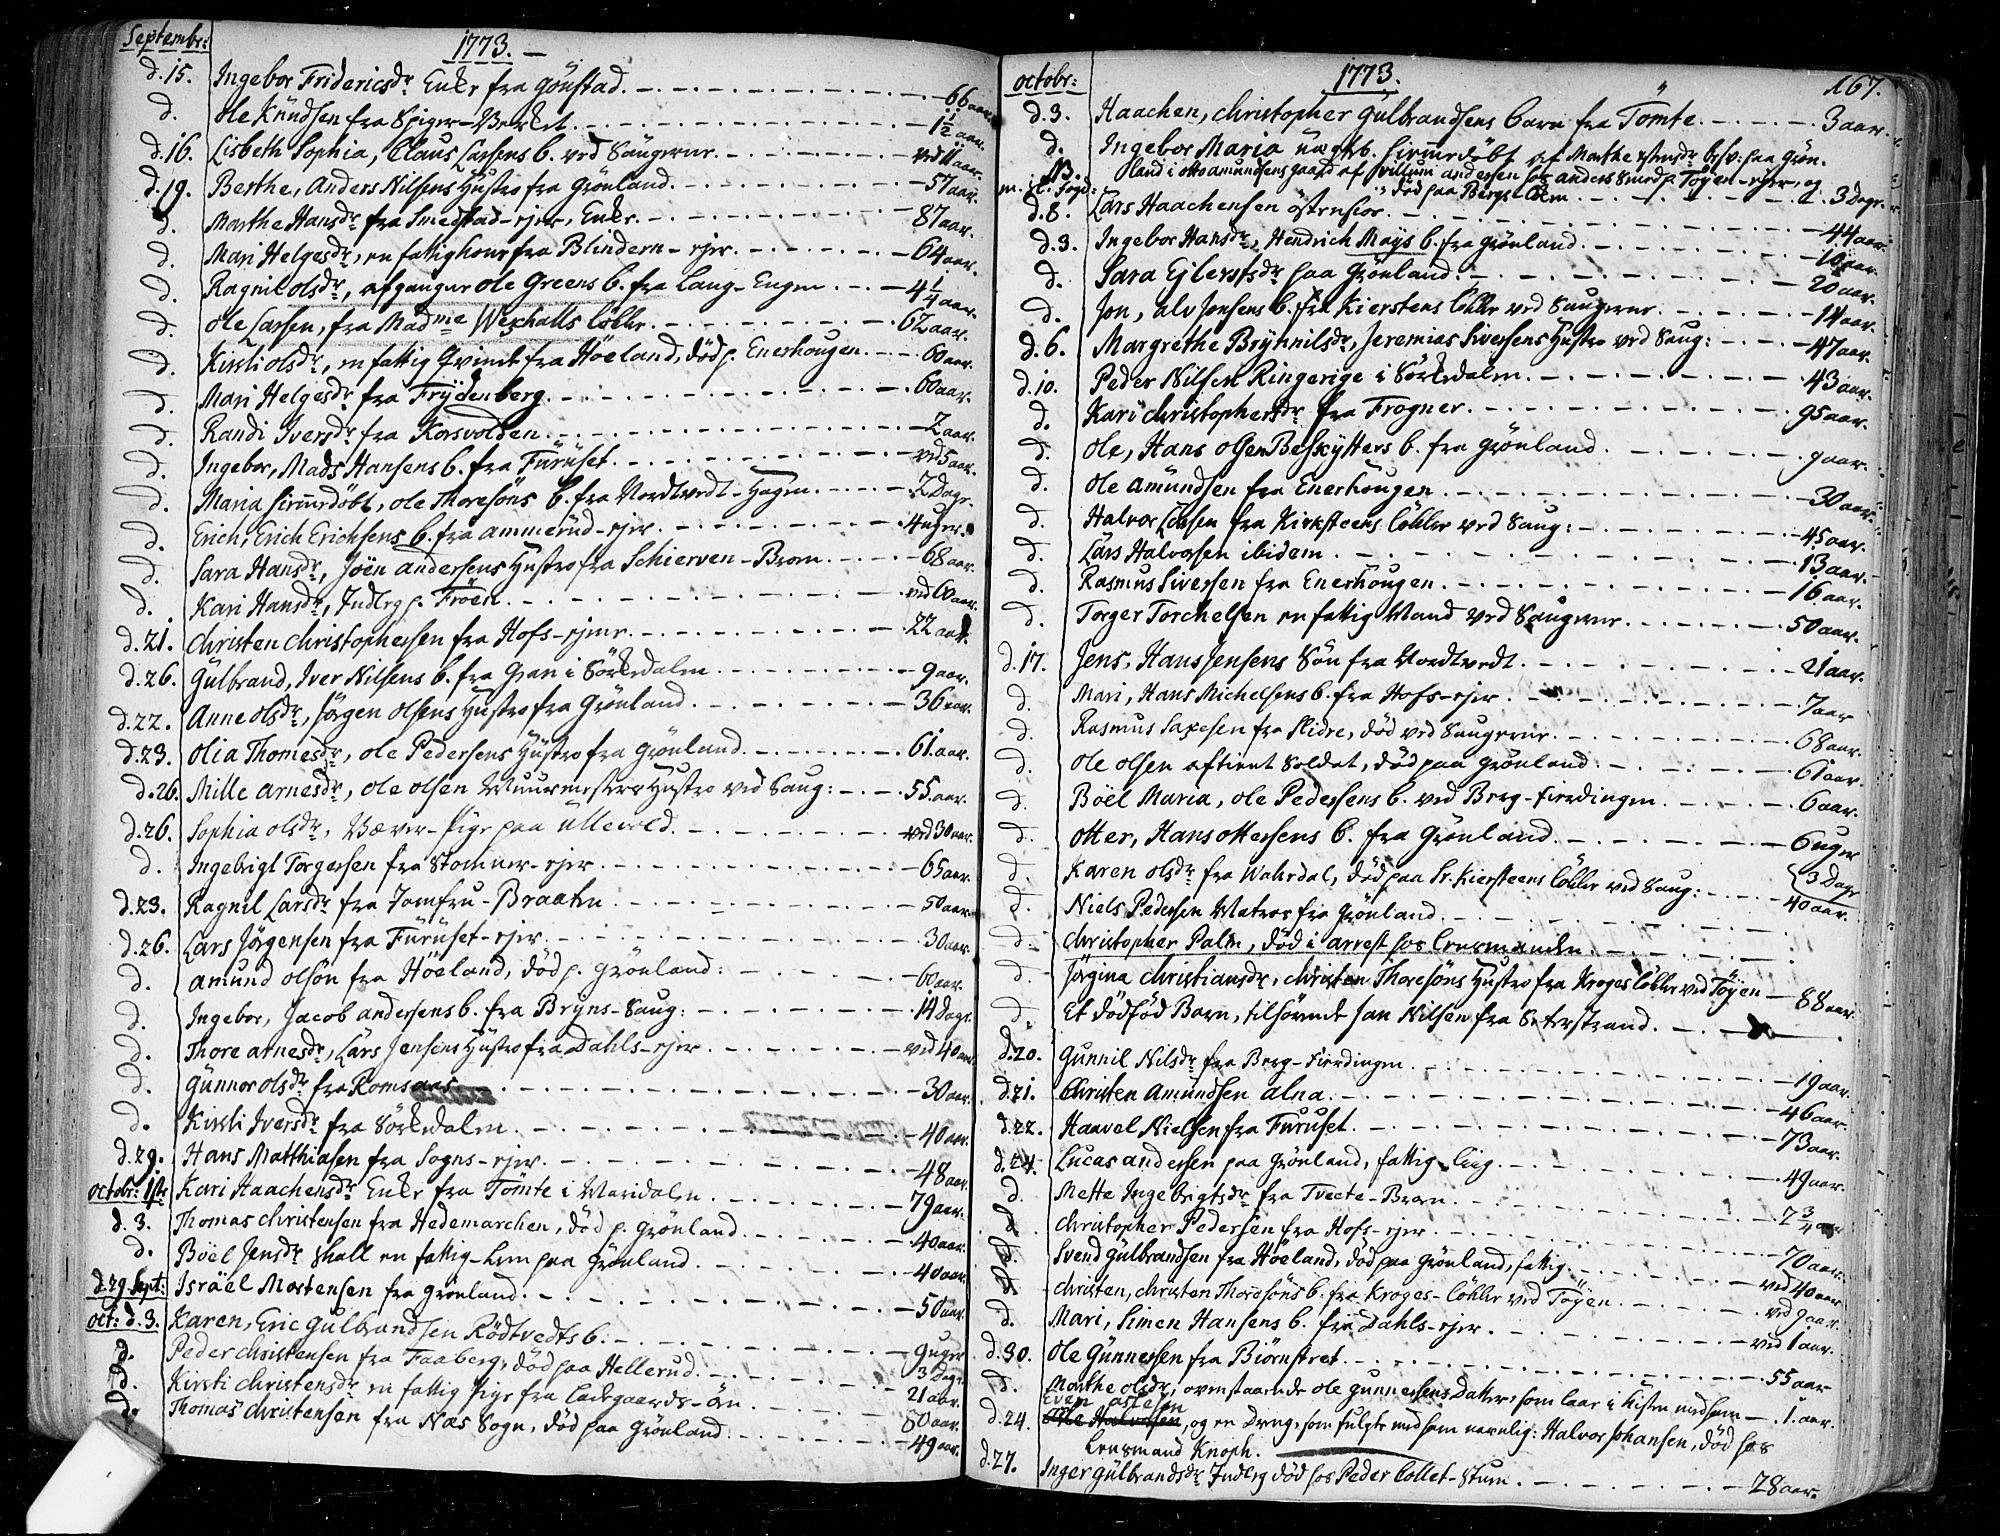 Septembr: 1773. —
d. 15. Ingebor Fridericsdr Enke fra Gøustad. 66 aar.
d. Ole Knudsen fra Spiger-Verket. 1 1/2 aar.
d. 16. Lisbeth Sophia, Claus Larsens b. ved Saugerne. ved 11 aar.
d. 19. Berthe, Anders Nilsens Hustro fra Grønland. 57 aar.
d. Marthe Hansdr fra Smedstad-ejer, Enke. 87 aar.
d. Mari Helgesdr, en fattig kone fra Blindern-ejer. 64 aar.
d. Ragnil Olsdr, afgangne Ole Greens b. fra Lang-Engen. 4 1/4 aar.
d. Ole Larsen, fra Madme Wexhalls Løkke. 62 aar.
d. Kirsti Olsdr, en fattig Qvinde fra Høeland, død p. Enerhougen. 60 aar.
d. Mari Helgesdr fra Frydenberg. 60 aar.
d. Randi Iversdr fra Korsvolden. 2 aar.
d. Ingebor, Mads Hansens b. fra Furuset. ved 5 aar.
d. Maria hiemmedøbt, Ole Thoresøns b. fra Nordtvedt-Hagen. 2 Dage.
d. Erich, Erich Erichsens b. fra Ammerud-ejer. 4 uger.
d. Sara Hansdr, Joen Andersens Hustro fra Schierven-Braaten. 68 aar.
d. Kari Hansdr, Inderg p. Frøen. ved 60 aar.
d. 21. Christen Christophersen fra Hofs-ejene. 22 aar.
d. 26. Gulbrand, Iver Nilsens b. fra Gran i Sørkedalen. 9 aar.
d. 22. Anne Olsdr, Jørgen Olsens Hustro fra Grønland. 36 aar.
d. 23. Olia Thomesdr, Ole Pedersens Hustro fra Grønland. 61 aar.
d. 26. Mille Arnesdr, Ole Olsen Muurmesters Hustro ved Saug: 55 aar.
d. 26. Sophia Olsdr, Væver-Pige paa Ullevold. ved 30 aar.
d. Ingebrigt Torgersen fra Stomner-ejer. 65 aar.
d. 23. Ragnil Larsdr fra Jomfru-Braaten. 50 aar.
d. 26. Lars Jørgensen fra Furuset-ejer. 30 aar.
d. Amund Olsøn fra Høeland, død p. Grønland: 60 aar.
d. Ingebor, Jacob Andersens b. fra Bryns-Saug: 14 Dage.
d. Thore Arnesdr, Lars Jensens Hustro fra Dahls-ejer. ved 40 aar.
d. Gunnor Olsdr fra Romsaas. 30 aar.
d. Kirsti Iversdr fra Sørkedalen. 40 aar.
d. 29. Hans Matthiasen fra Sogns-ejer. 48 aar.
Octobr: 1ste Kari Haachensdr Enke fra Tømte i Maridalen. 79 aar.
d. 3. Thomas Christensen fra Hedemarchen, død p. Grønland. 40 aar.
d. Böel Jensdr Skall en fattig-Lem paa Grønland. 40 aar.
d. 29 Sept: Israel Mortensen fra Grønland. 50 aar.
Oct: d. 3. Karen, Eric Gulbrandsen Rødtvedts b. 9 uger
d. Peder Christensen fra Faaberg, død paa Hellerud. 3 Dage
d. Kirsti Christensdr en fattig Pige fra Ladegaards-øen. 21 aar.
d. Thomas Christensen fra Næs Sogn, død paa Grønland. 80 aar.
49 aar.
Octobr: 1773. 167.
d. 3. Haachen, Christopher Gulbrandsens barn fra Tömte. 3 aar.
d. Ingebor Maria uægteb. hiemmedøbt af Marthe Ostensdr besv: paa Grøn-
land i Otto Amundsens gaard af Villum Andersen hos Anders Smed p. Tøyen-ejer, og
død paa Bergs-Løkken. 3 Dage.
d. 8. Lars Haachensen Østensioe. 44 aar.
d. 3. Ingebor Hansdr, Hendrich Mays b. fra Grønland. 10 aar.
d. Sara Ejlertsdr paa Grønland. 20 aar.
d. Jon, Alv Jonsens b. fra Kierstens Løkke ved Saugerne. 14 aar.
d. 6. Margrethe Brynnilsdr, Jeremias Sivertsens Hustro ved Saug: 47 aar.
d. 10. Peder Nilsen Ringerige i Sørkedalen. 43 aar.
d. Kari Christophersdr fra Frogner. 95 aar.
d. Ole, Hans Olsen Beskytters b. fra Grønland. 9 aar.
d. Ole Amundsen fra Enerhougen. 30 aar.
d. Halvor Larsen fra Kirksteens Løkke ved Saug: 45 aar.
d. Lars Halvorsen ibidem. 13 aar.
d. Rasmus Siversen fra Enerhougen. 16 aar.
d. Torger Torchelsen en fattig Mand ved Saugerne. 50 aar.
d. 17. Jens, Hans Jensens Søn fra Nordtvedt. 21 aar.
d. Mari, Hans Michelsens b. fra Hofs-ejer. 7 aar
d. Rasmus Saxesen fra Slidre, død ved Saugerne. 68 aar.
d. Ole Olsen aftient Soldat, død paa Grønland. 61 aar.
d. Böel Maria, Ole Pedersens b. ved Berg-Fierdingen. 6 aar.
d. Otter, Hans Ottersens b. fra Grønland. 6 uger
d. Karen Olsdr fra Wahrdal, død paa Sr. Kiersteens Løkke ved Saug: 3 Dage
d. Niels Pedersen Matros fra Grønland. 40 aar.
d. Christopher Palm, død i arrest hos Lensmanden.
d. Jørgina Christiansdr, Christen Thoresøns Hustro fra Kroges Løkke ved Tøyen — 88 aar.
d. Et dødfød Barn, tilhørende Jan Nilsen fra Saterstrand.
d. 20. Gunnil Nilsdr fra Berg-Fierdingen. 19 aar.
d. 21. Christen Amundsen Alna. 46 aar.
d. 22. Haavel Nielsen fra Furuset. 73 aar.
d. 24. Lucas Andersen paa Grønland, fattig-Liig. 49 aar.
d. Mette Ingebrigtsdr fra Tveete-Braaten. 2 3/4 aar
d. Christopher Pedersen fra Hofs-ejer. 70 aar.
d. Svend Gulbrandsen fra Høeland, død paa Grønland, fattig. ved 40 aar
d. Christen, Christen Thoresøns b. fra Kroges-Løkke ved Tøyen. ved 9 aar.
d. Mari, Simen Hansens b. fra Dahls-ejer. ved 1 aar.
d. 30. Ole Gunnersen fra Biørnstret. 55 aar
d. Marthe Olsdr, ovenstaaende Ole Gunnersens Datter, som laae i Kisten med ham — 1 aar.
d. 24. Even , og en Dreng, som fulgte med ham navnlig: Halvor Johansen, død hos
Lensmand Knoph.
d. 27. Inger Gulbrandsdr Inderg død hos Peder Collet-Stuen. 28 aar.